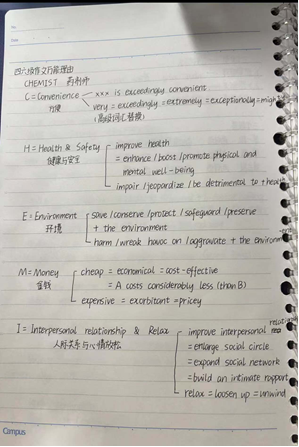 No.
Date
四六级作文万能理由
CHEMIST 药剂师
C = Convenience xxx is exceedingly convenient
方便 very = exceedingly = extremely = exceptionally = migh
(高级词汇替换)
H = Health & Safety improve health
健康与安全 = enhance / boost / promote physical and
mental well-being
impair / jeopardize / be detrimental to + health
E = Environment save / conserve / protect / safeguard / preserve
环境 + the environment
harm / wreak havoc on / aggravate + the environm
M = Money cheap = economical = cost-effective
金钱 = A costs considerably less (than B)
expensive = exorbitant = pricey
I = Interpersonal relationship & Relax improve interpersonal relati
人际关系与心情放松 = enlarge social circle
= expand social network
= build an intimate rapport
relax = loosen up = unwind
Campus